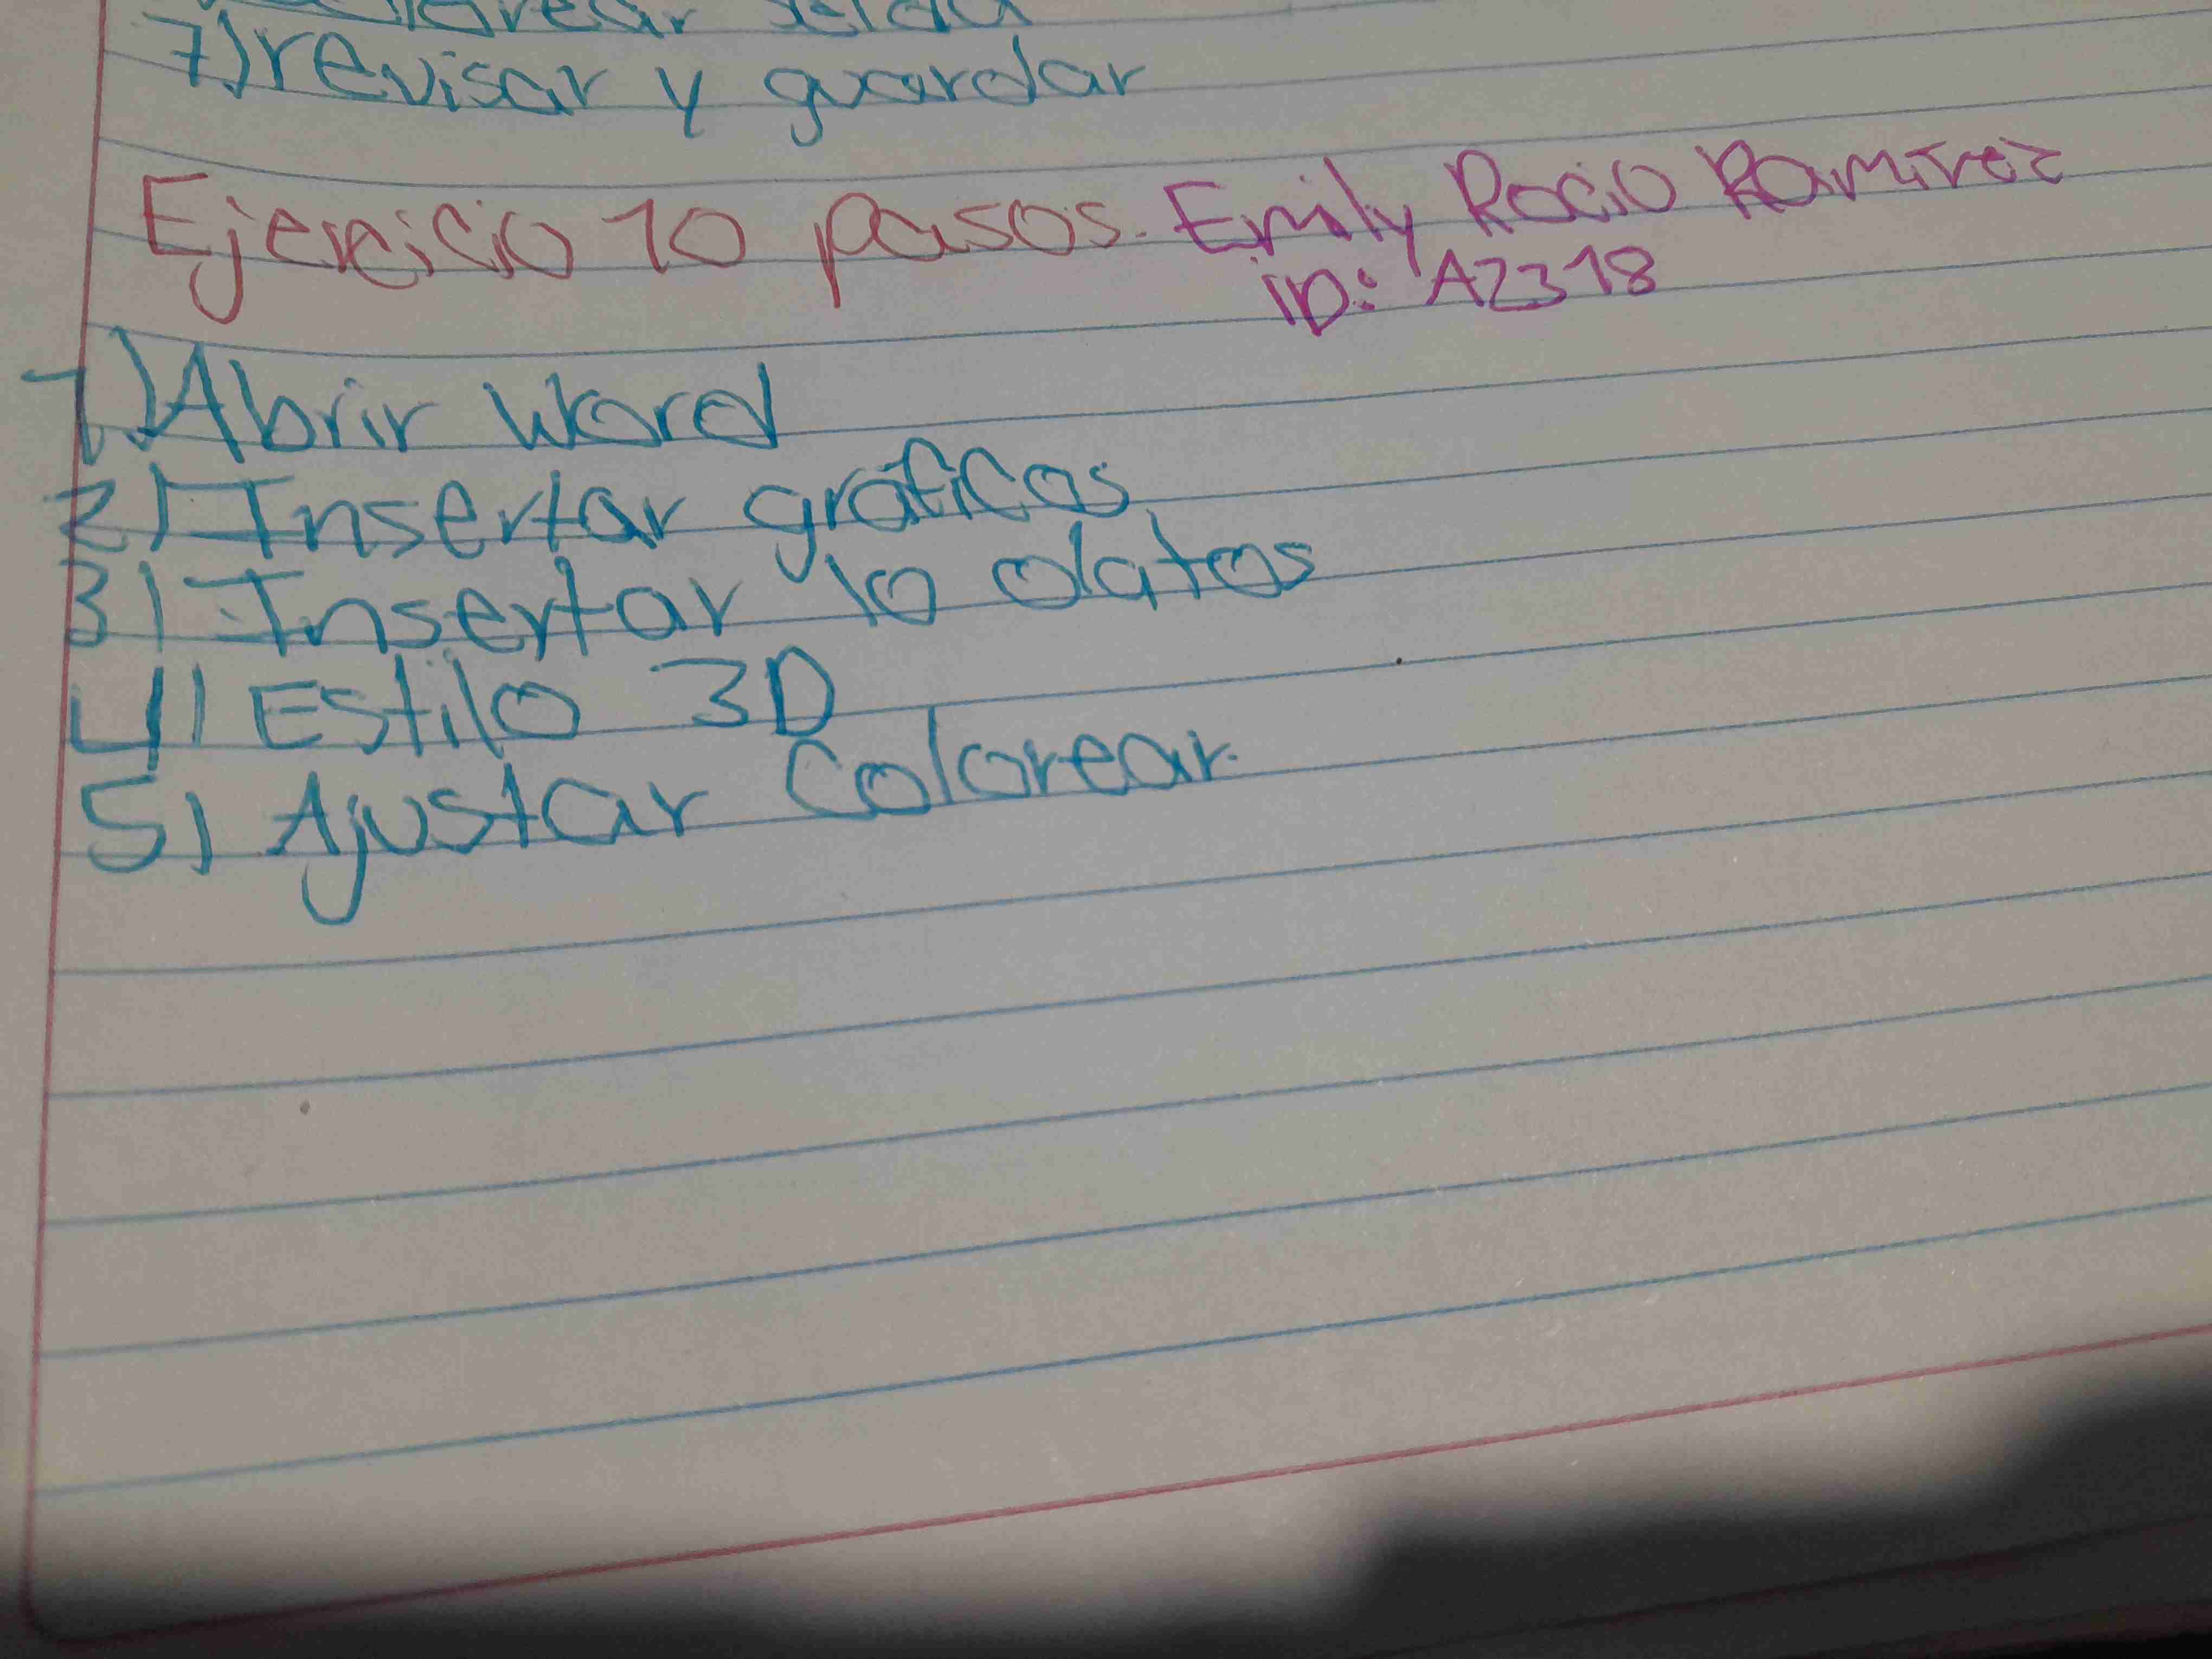 7) revisar y guardar
Ejercicio 10 pasos. Emily Rocio Ramirez
ID: A2318
1.) Abrir Word
2) Insertar gráficos
3) Insertar 10 datos
4) Estilo 3D
5) Ajustar colorear.